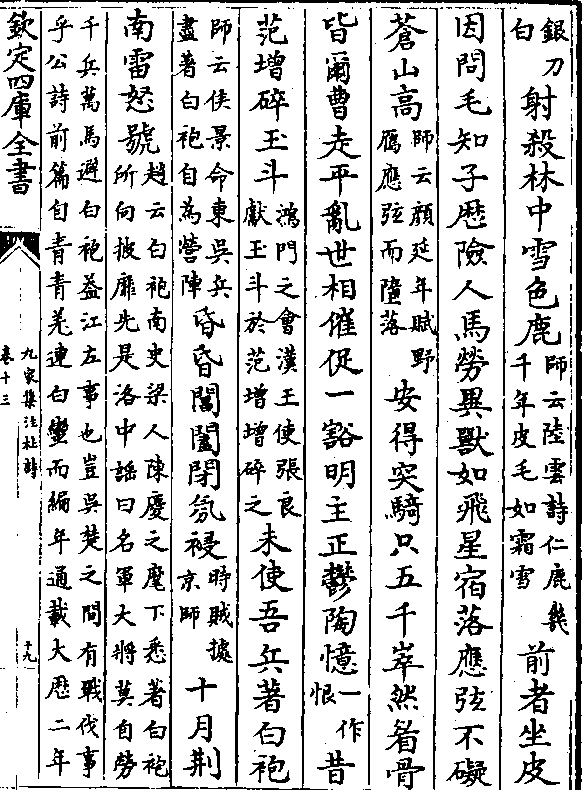 銀刀
白
射殺林中雪色鹿
師云陸雲詩仁鹿幾
千年皮毛如霜雪
前者坐皮
因問毛知子歷險人馬勞異獸如飛星宿落應弦不礙
蒼山高
師云顔延年賦野
鴈應弦而墮落
安得突騎只五千崒然眉骨
皆爾曹走平亂世相催促一豁明主正鬱陶憶
一作
恨
昔
范增碎玉斗
鴻門之會漢王使張良
獻玉斗於范增增碎之
未使吾兵著白袍
師云侯景命東吳兵
盡著白袍自為營陣
昏昏閶闔閉氛祲
時賊據
京師
十月荆
南雷怒號
趙云白袍南史梁人陳慶之麾下悉著白袍
所向披靡先是洛中謡曰名軍大將莫自勞
千兵萬馬避白袍蓋江左事也豈吳楚之間有戰伐事
乎公詩前篇自青青羌連白蠻而編年通載大歷二年
欽定四庫全書
九家集注杜詩
卷十三
十九